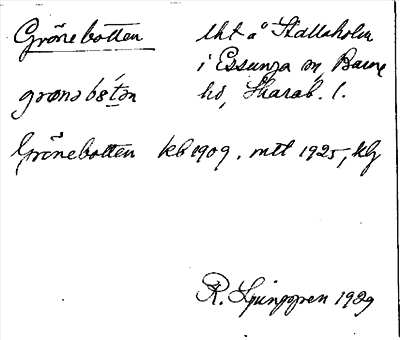 Grönebotten lht å Stallaholm
i Essunga sn, Barne
grønəbòtən hd, Skarab. l.
Grönebotten kb 1909. mtl 1925, klg
R. Ljunggren 1929